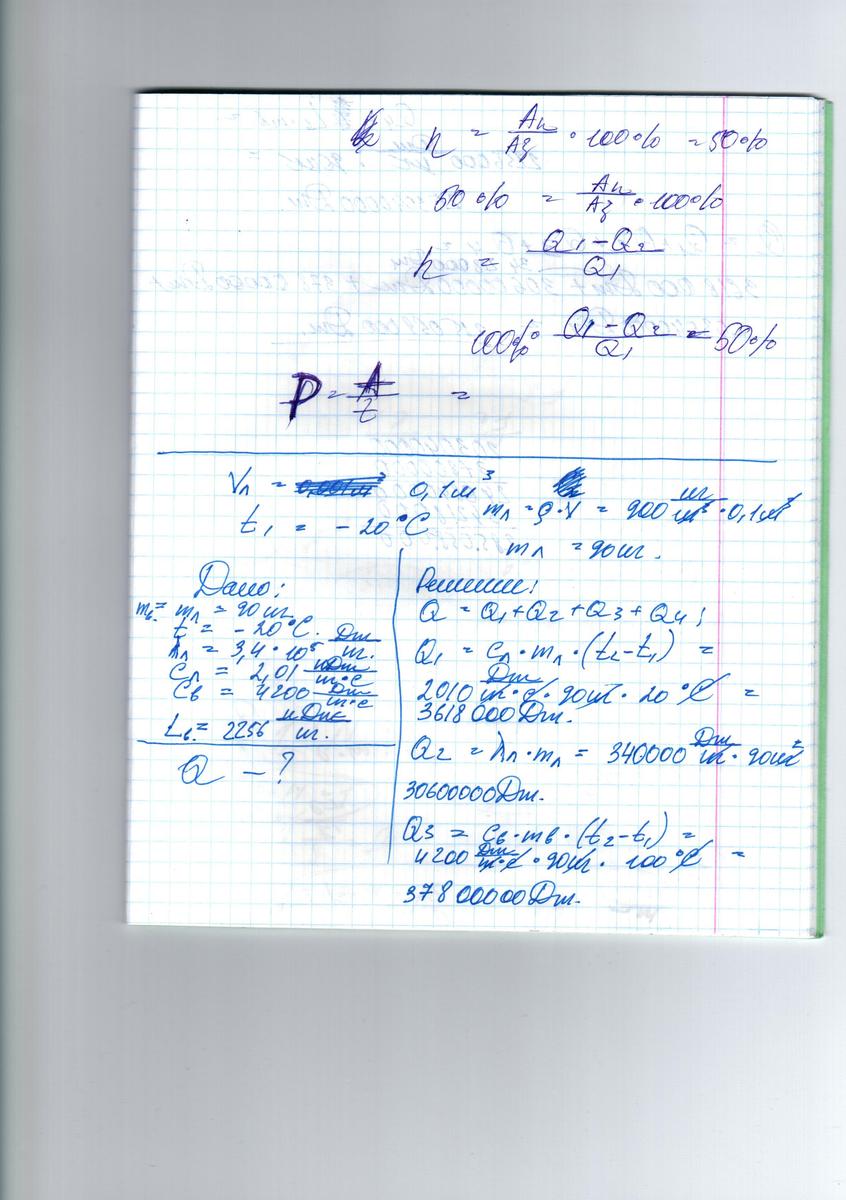 η = Aп/Aз • 100% = 50%
50% = Aп/Aз • 100%
η = Q₁ – Q₂/Q₁
100% Q₁ – Q₂/Q₁ = 50%
P = A/t =
Vл = 0,1 м³
mл = ρ·V = 900 кг/м³ · 0,1 м³
t₁ = – 20°C
mл = 90 кг.
Дано:
mв = mл = 90 кг
t = – 20°C.
λл = 3,4 • 10⁵ Дж/кг.
Cл = 2,01 кДж/кг•C
Cв = 4200 Дж/кг•C
Lв = 2256 кДж/кг.
Q – ?
Решение:
Q = Q₁ + Q₂ + Q₃ + Q₄;
Q₁ = Cл • mл • (t₂ – t₁) =
2010 Дж/кг•C • 90 кг • 20 °C =
3618 000 Дж.
Q₂ = λл • mл = 340000 Дж/кг • 90 кг =
30600000 Дж.
Q₃ = Cв • mв • (t₂ – t₁) =
4200 Дж/кг•C • 90 кг • 100 °C =
378 00000 Дж.